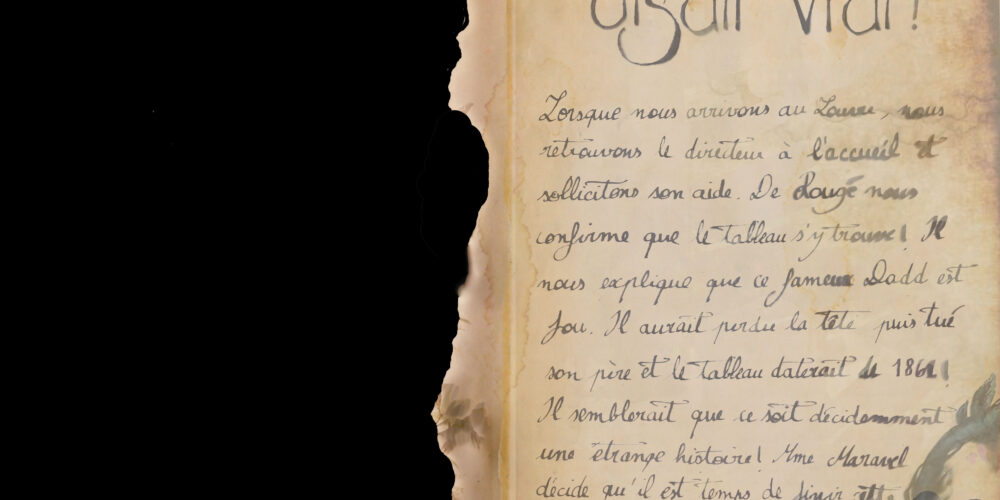 disait vrai!
Lorsque nous arrivons au Louvre, nous
retrouvons le directeur à l'accueil et
sollicitons son aide. De Rougé nous
confirme que le tableau s'y trouve! Il
nous explique que ce fameux Dadd est
fou. Il aurait perdu la tête puis tué
son père et le tableau daterait de 1861!
Il semblerait que ce soit décidemment
une étrange histoire! Mme Maravel
décide qu'il est temps de finir